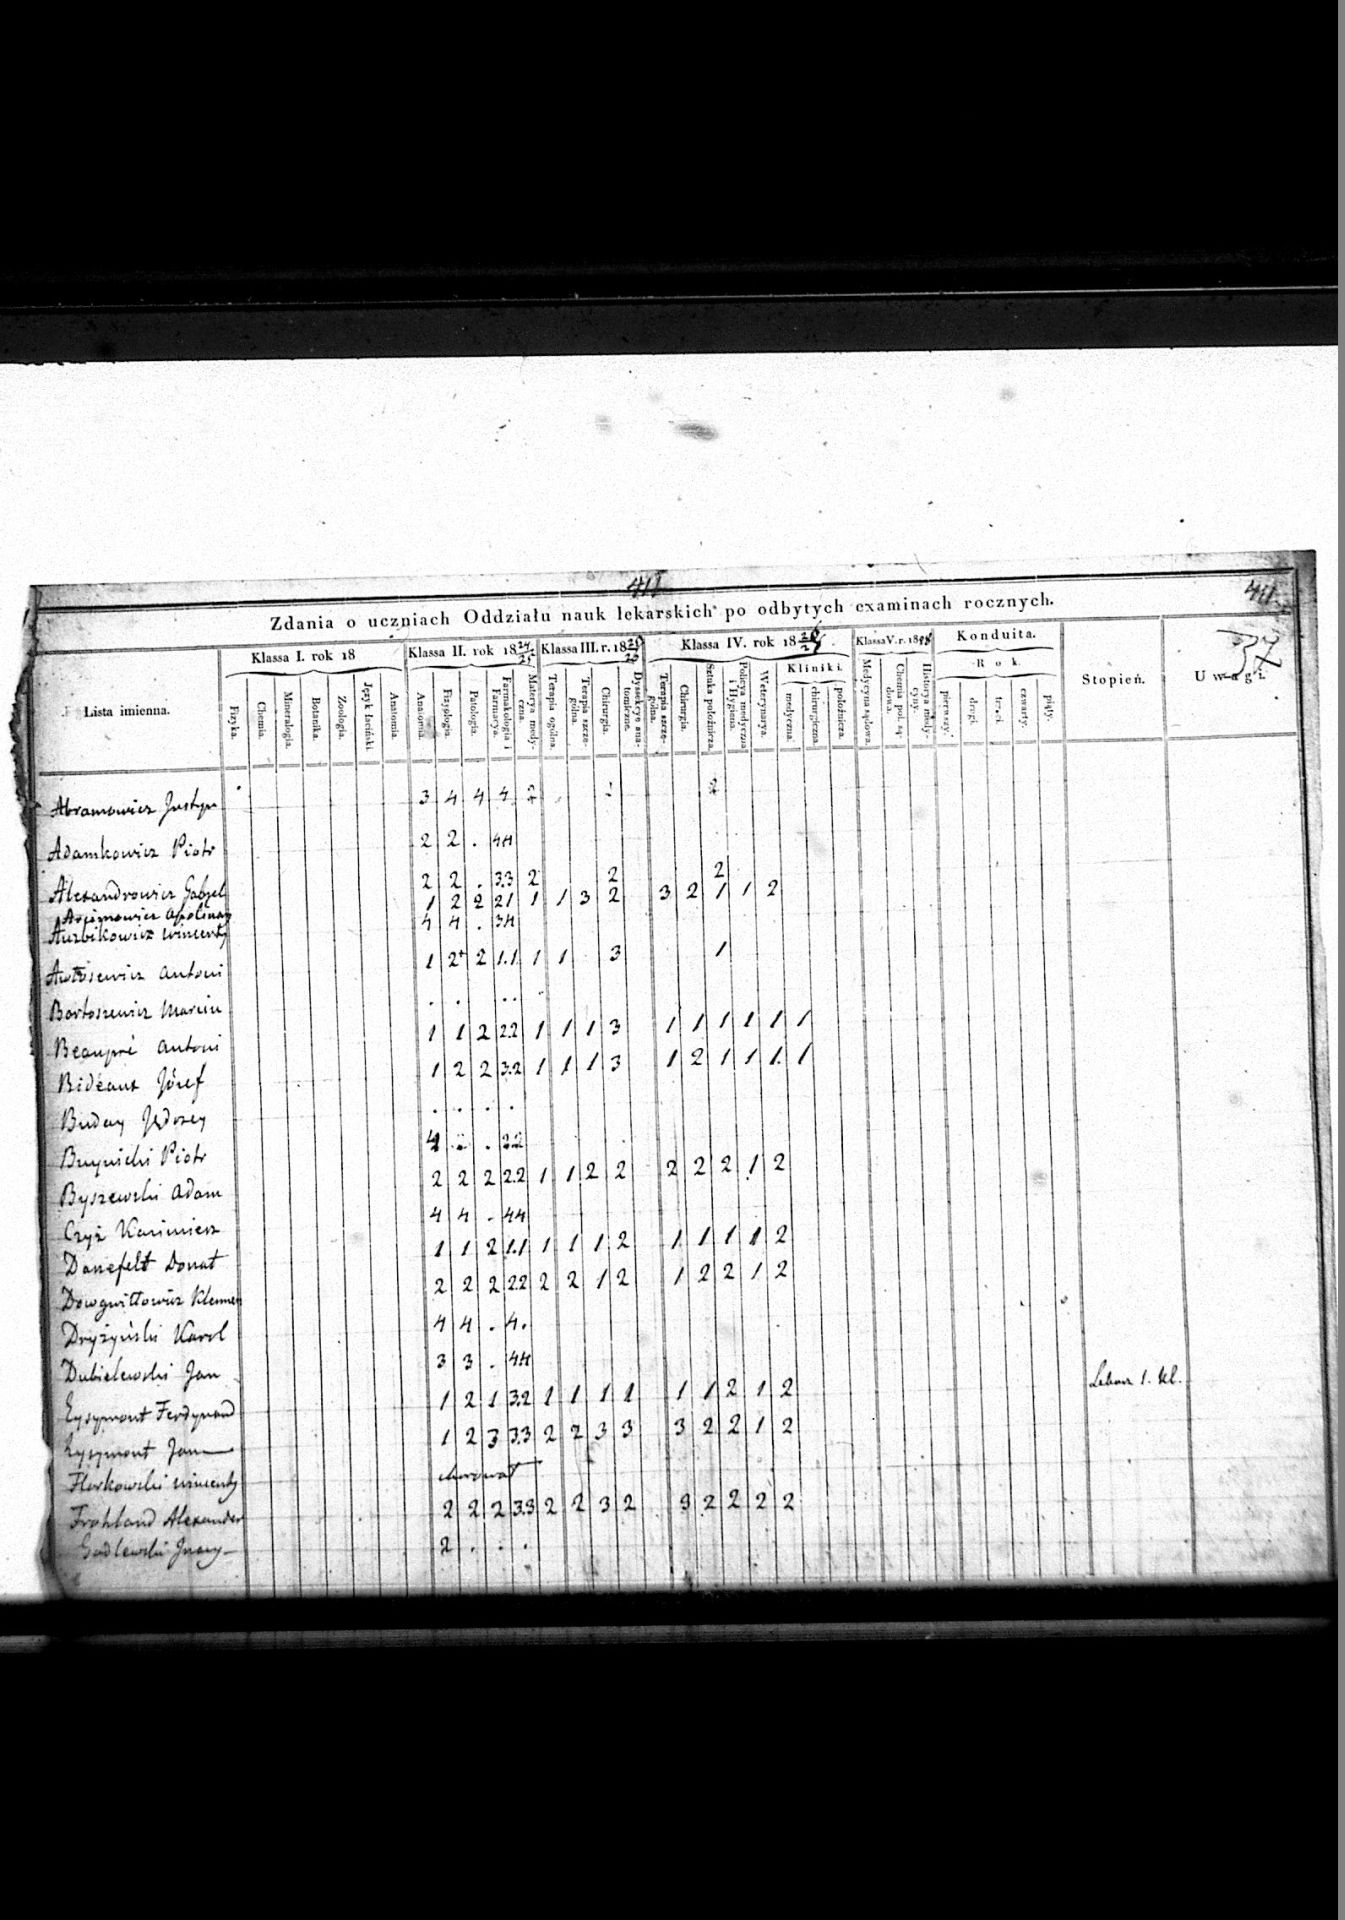 411
411
37
Zdania o uczniach Oddziału nauk lekarskich po odbytych examinach rocznych.
Lista imienna. Klassa I. rok 18 Klassa II. rok 18 24/25 Klassa III. r. 18 25/26 Klassa IV. rok 18 26/27 Klassa V. r. 18 Konduita. Stopień. Uwagi.
Kliniki. Rok.
Fizyka. Chemia. Mineralogia. Botanika. Zoologia. Język łaciński. Anatomia Anatomia. Fizyologia. Patologia. Farmakologia i Farmacya. Materya medyczna. Terapia ogólna. Terapia szczególna. Chirurgia. Dyssekcye anatomiczne. Terapia szczególna. Chirurgia. Sztuka położnicza. Policya medyczna i Hygiena. Weterynarya. medyczna. chirurgiczna. położnicza. Medycyna sądowa. Chemia pol. sądowa. Historya medycyny. pierwszy. drugi. trzeci. czwarty. piąty.
Abramowicz Justyn 3 4 4 4 2 2
Adamkowicz Piotr 2 2 . 44
Alexandrowicz Gabryel 2 2 . 3.3 2 2 2
Arcimowicz Apolinary 1 2 2 21 1 1 3 2 3 2 1 1 2
Aurbikowicz Wincenty 4 4 . 34
Antoni 1 2+ 2 1.1 1 1 3 1
Bartoszewicz Marcin . . . .
Beaupré Antoni 1 1 2 2.2 1 1 1 3 1 1 1 1 1 1
Bideaut Józef 1 2 2 3.2 1 1 1 3 1 2 1 1 1. 1
Buday Jędrzey . . . .
Buynicki Piotr 4 2 . 2.2
Byszewski Adam 2 2 2 2.2 1 1 2 2 2 2 2 1 2
Czyż Kazimierz 4 4 . 44
Danefelt Donat 1 1 2 1.1 1 1 1 2 1 1 1 1 2
Dowgwiłłowicz Klemens 2 2 2 2.2 2 2 1 2 1 2 2 1 2
Dryżyński Karol 4 4 . 4.
Dubielewski Jan 3 3 . 44
Eysymont Ferdynand 1 2 1 3.2 1 1 1 1 1 1 2 1 2 Lekarz 1. kl.
Eysymont Jan 1 2 3 3.3 2 2 3 3 3 2 2 1 2
Florkowski Wincenty chorował
Frohland Alexander 2 2 2 3.3 2 2 3 2 3 2 2 2 2
Godlewski 2 . . .